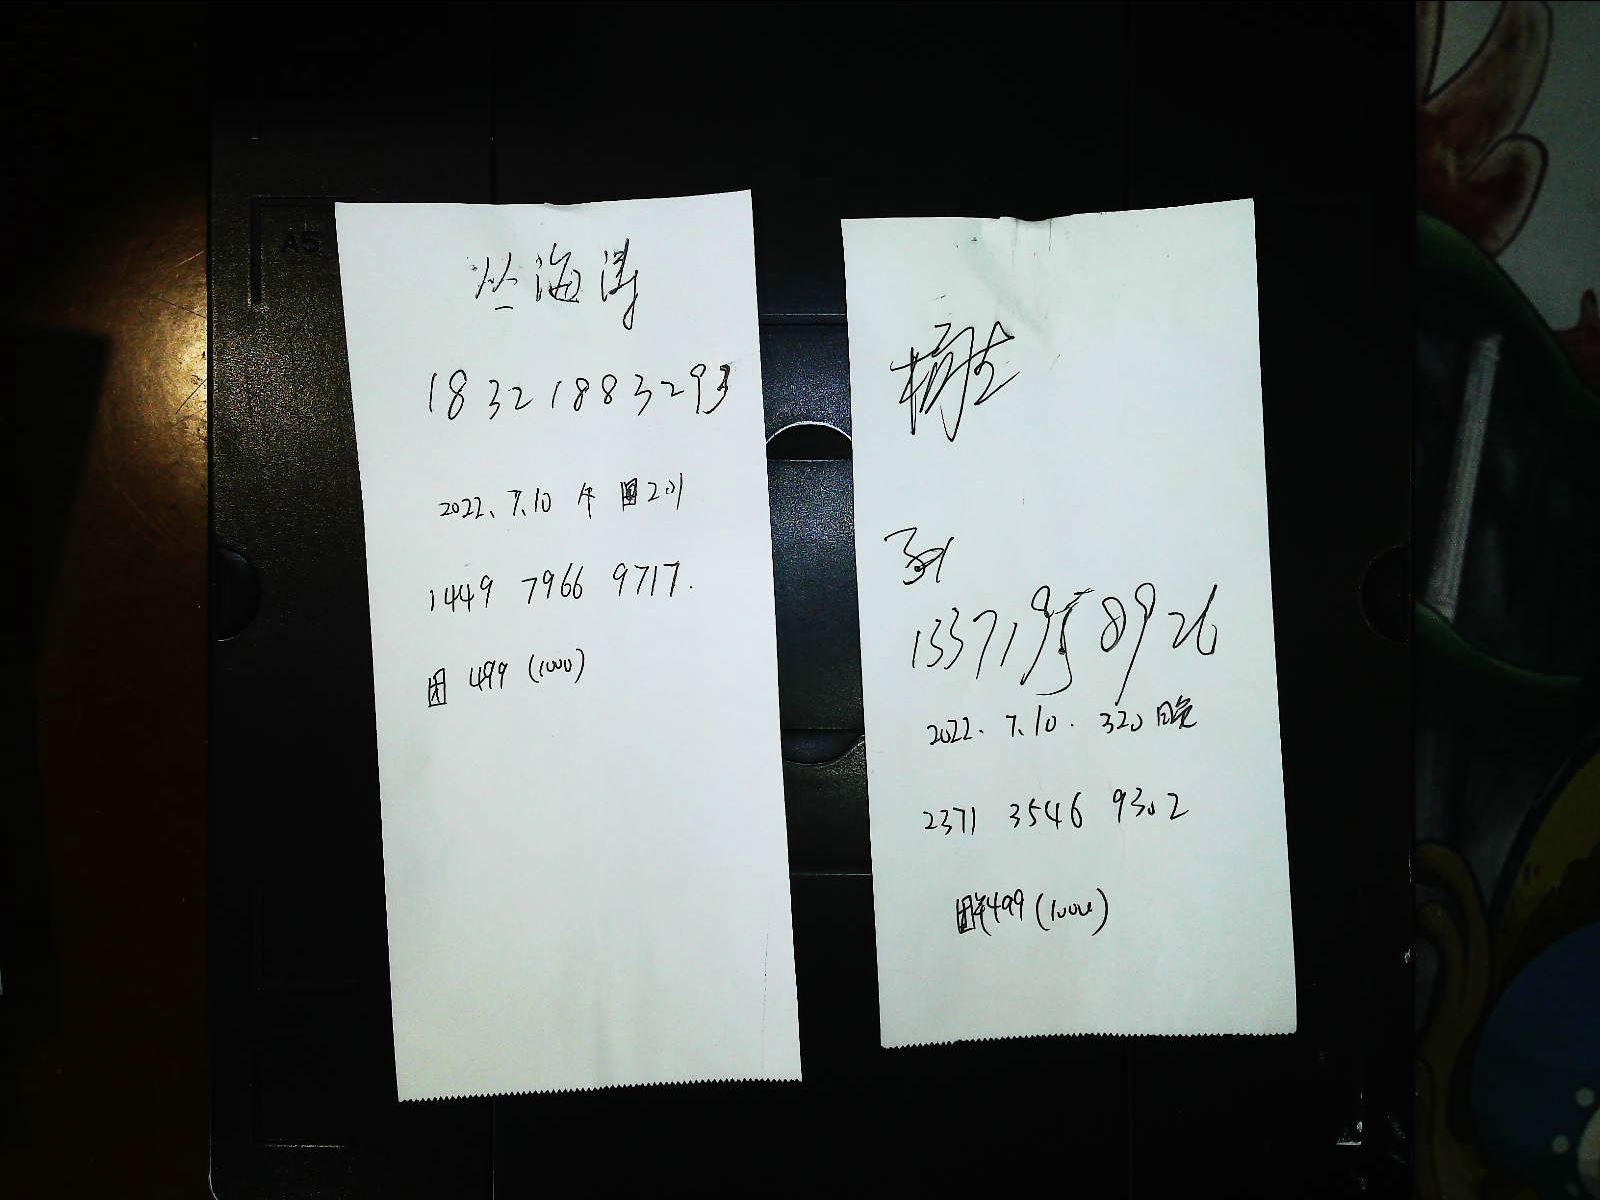 丛海涛
18321883293
2022.7.10 午 201
1449 7966 9717.
团 499 (1000)
13371958926
2022.7.10. 320 晚
2371 3546 9302
499 (1000)
A5